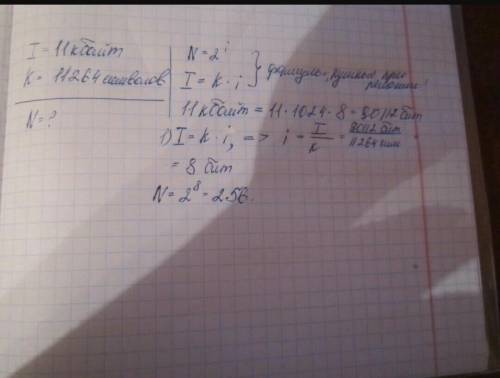 I = 11 кбайт
K = 11264 символов
N = ?
N = 2^i
I = K · i
} формулы, нужные при решении!
11 кбайт = 11 · 1024 · 8 = 90112 бит
1) I = K · i, => i = I/K = 90112 бит/11264 сим =
= 8 бит
N = 2^8 = 256.